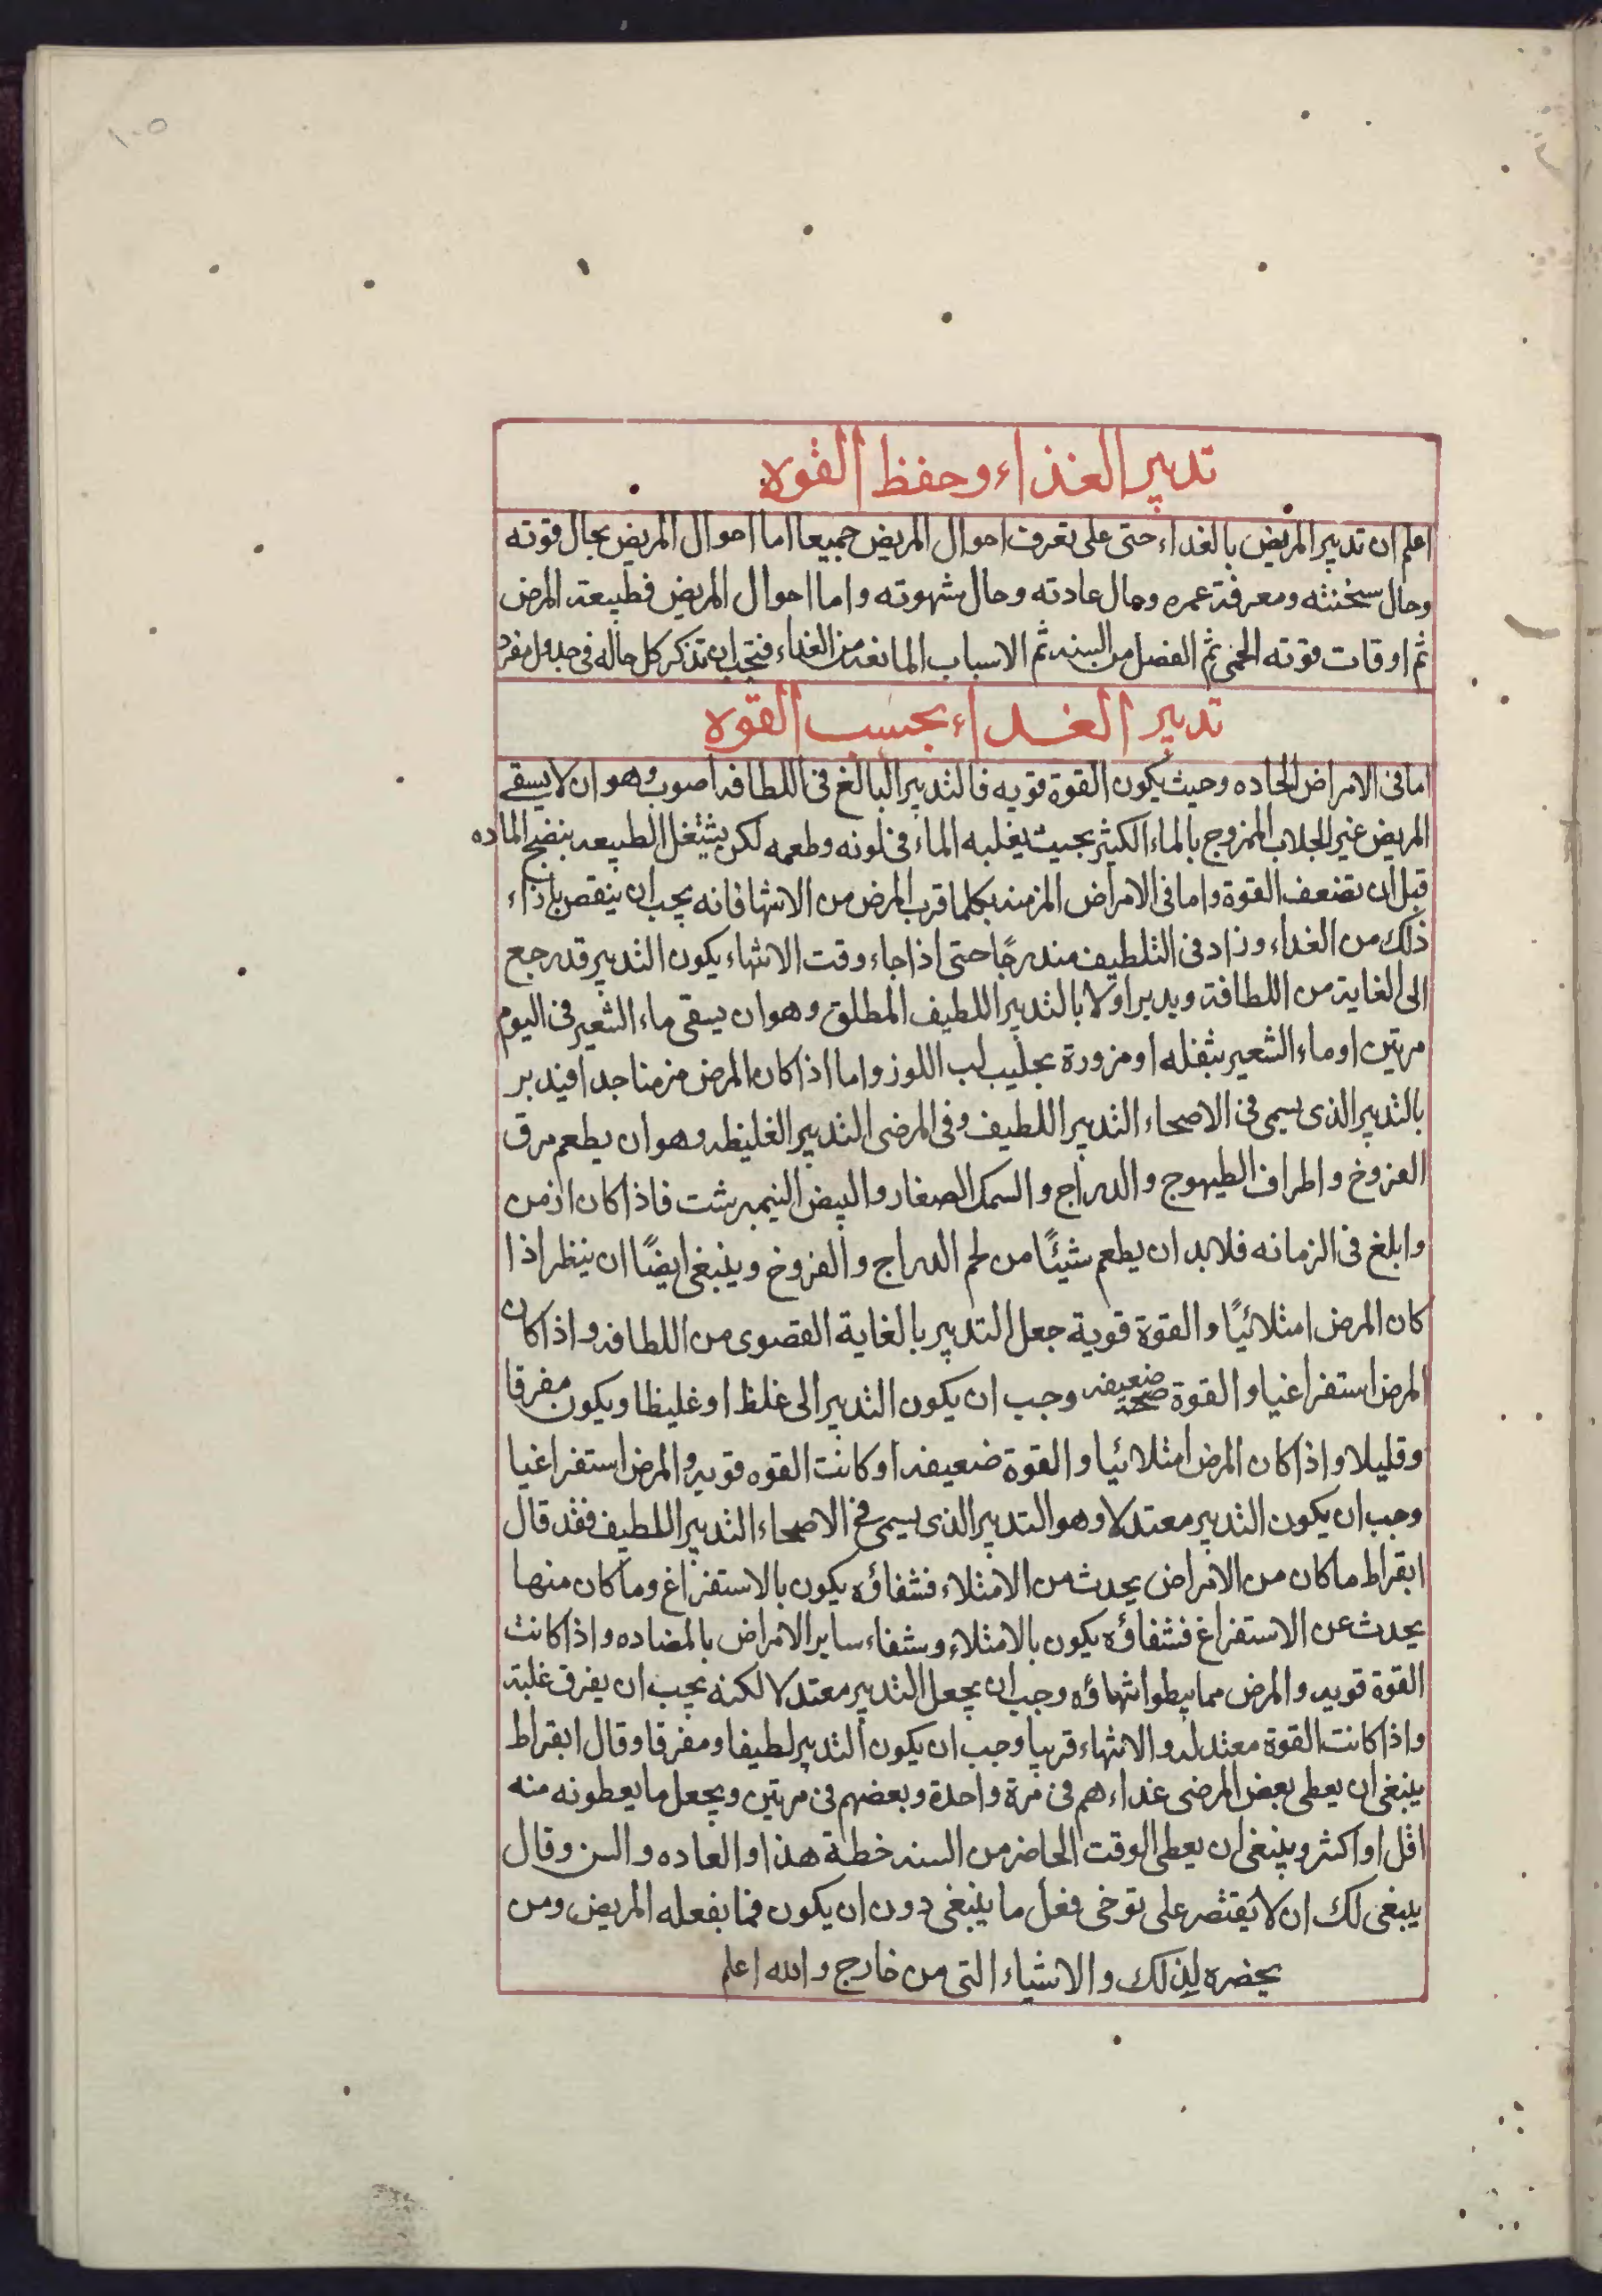 ١٠٥
تدبير الغذاء وحفظ القوه
اعلم ان تدبير المريض بالغداء حتى على تعرف احوال المريض جميعا اما احوال المريض بحال قوته
وحال سخنته ومعرفة عمره وحال عادته وحال شهوته واما احوال المريض فطبيعة المرض
ثم اوقات قوته الحمى ثم الفضل من السنه ثم الاسباب المانعه من الغداء فتجب ان تذكر كل حاله فى جدول مفرد
تدبير الغداء بحسب القوه
اما فى الامراض الحاده وحيث يكون القوة قويه فالتدبير البالغ فى اللطافه اصوب وهو ان لا يسقے
المريض غير الجلاب الممزوج بالماء الكثير بحيث يغلبه الماء فى لونه وطعمه لكن يشتغل الطبيعه بنضج الماده
قبل ان تضعف القوة واما فى الامراض المزمنه بكلما قرب المرض من الانتها فانه يجب ان ينقص باذاء
ذلك من الغداء وزاد فى التلطيف مندرجًا حتى اذا جاء وقت الانتهاء يكون التدبير قد رجع
الى الغاية من اللطافة ويدبر اولا بالتدبير اللطيف المطلق وهو ان يسقى ماء الشعير فى اليوم
مرتين او ماء الشعير بثفله او مزورة بحليب لب اللوز واما اذا كان المرض مزمنا جدا فيدبر
بالتدبير الذى يسمى فى الاصحاء التدبير اللطيف وفى المرضى التدبير الغليظه وهو ان يطعم مرق
الفروخ واطراف الطيهوج والدراج والسمك الصغار والبيض النيمبرشت فاذا كان ازمن
وابلغ فى الزمانه فلابد ان يطعم شيئًا من لحم الدراج والفروخ وينبغى ايضًا ان ينظر اذا
كان المرض امتلائيًا والقوة قوية جعل التدبير بالغاية القصوى من اللطافه واذا كان
المرض استفراغيا والقوة ضعيفه صحة وجب ان يكون التدبير الى غلظ او غليظا ويكون مفرقا
وقليلا واذا كان المرض امتلائيا والقوة ضعيفه او كانت القوه قويه والمرض استفراغيا
وجب ان يكون التدبير معتدلا وهو التدبير الذى يسمى فى الاصحاء التدبير اللطيف فقد قال
ابقراط ما كان من الامراض يحدث من الامتلاء فشفاؤه يكون بالاستفراغ وما كان منها
يحدث عن الاستفراغ فشفاؤه يكون بالامتلاء وشفاء ساير الامراض بالمضاده واذا كانت
القوة قويه والمرض مما يبطوا انتهاؤه وجب ان يجعل التدبير معتدلا لكنه يجب ان يفرق غلبته
واذا كانت القوة معتدله والانتهاء قريبا وجب ان يكون التدبير لطيفا ومفرقا وقال ابقراط
ينبغى ان يعطى بعض المرضى غداءهم فى مرة واحدة وبعضهم فى مرتين ويجعل ما يعطونه منه
اقل او اكثر وينبغى ان يعطى الوقت الحاضر من السنه خطة هذا والعاده والسن وقال
ينبغى لك ان لا يقتصر على توخى فعل ما ينبغى دون ان يكون فما بفعله المريض ومن
يحضره لذلك والاشياء التى من خارج والله اعلم